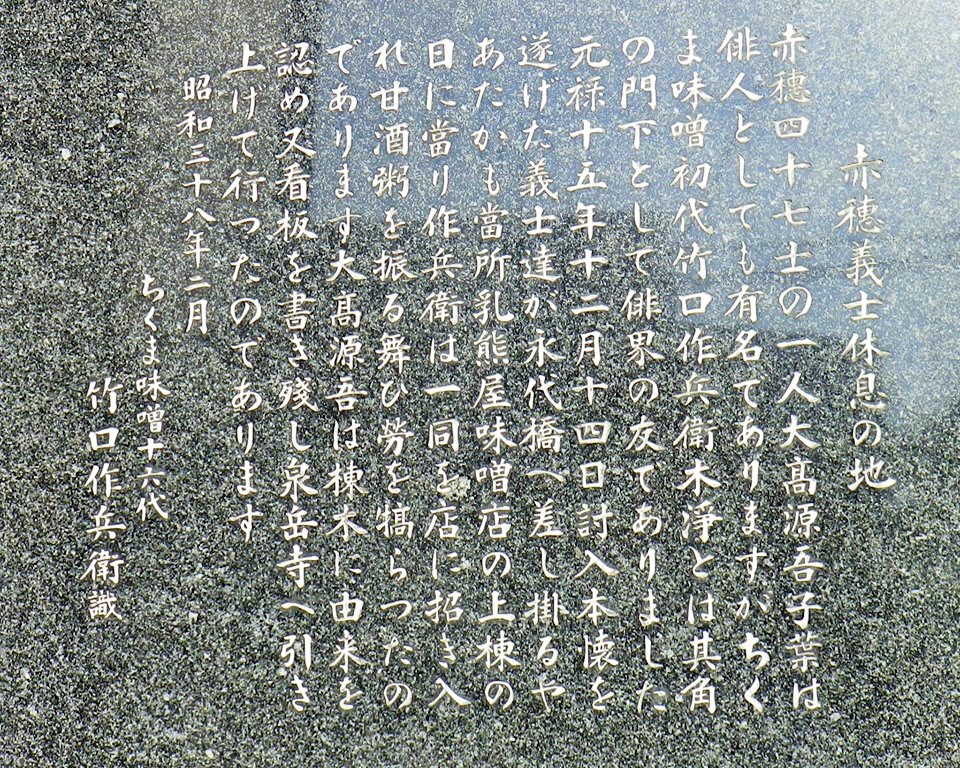 赤穗義士休息の地
赤穗四十七士の一人大髙源吾子葉は
俳人としても有名てありますがちく
ま味噌初代竹口作兵衛木淨とは其角
の門下として俳界の友でありました
元禄十五年十二月十四日討入本懐を
遂げた義士達が永代橋へ差し掛るや
あたかも當所乳熊屋味噌店の上棟の
日に當り作兵衛は一同を店に招き入
れ甘酒粥を振る舞ひ労を犒らつたの
であります大髙源吾は棟木に由来を
認め又看板を書き残し泉岳寺へ引き
上けて行つたのであります
昭和三十八年二月
ちくま味噌十六代
竹口作兵衛識